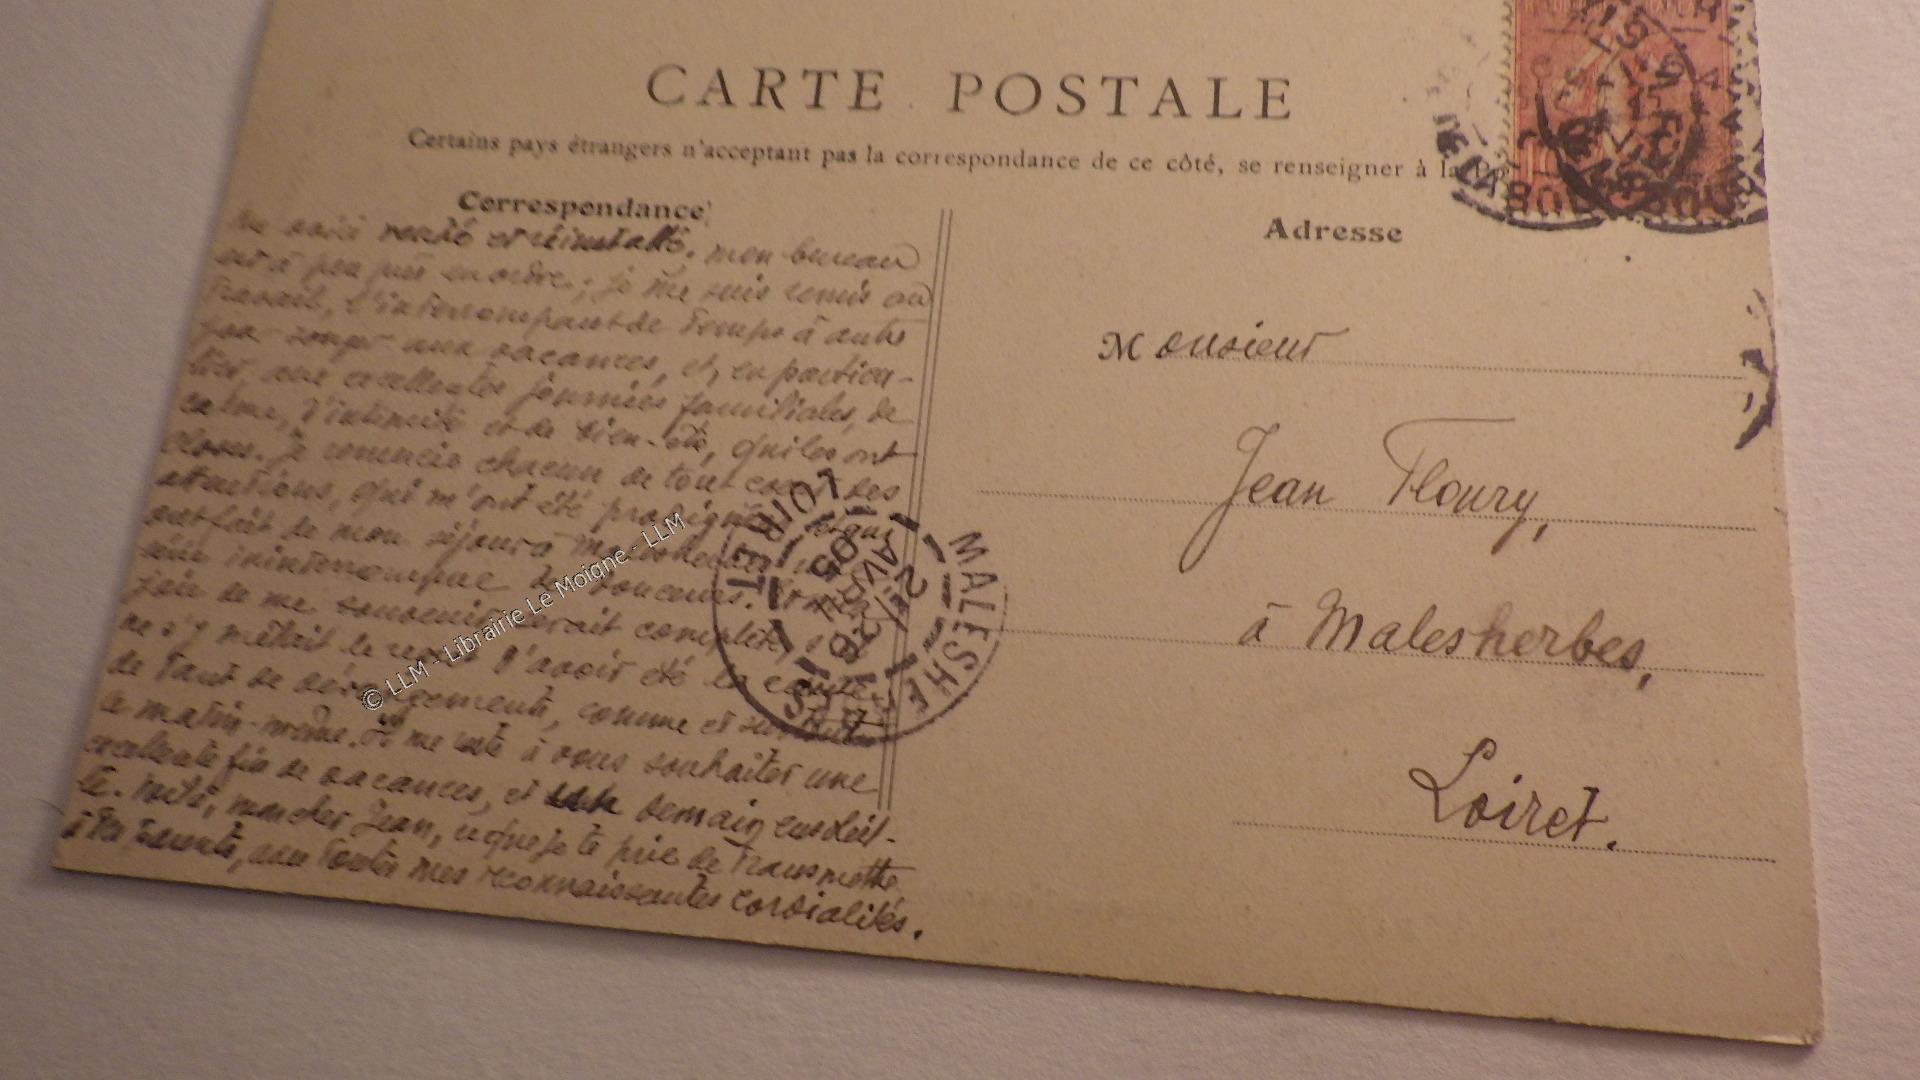 CARTE POSTALE
Certains pays étrangers n'acceptant pas la correspondance de ce côté, se renseigner à la
Correspondance
Adresse
Me voici rentré et réinstallé. mon bureau
est à peu près en ordre ; je me suis remis au
travail, l'interrompant de temps à autre
pour songer aux vacances, et, en particu-
lier, aux excellentes journées familiales, de
calme, d'intimité et de bien-être, qui les ont
closes. Je remercie chacun de tout cœur des
attentions, qui m'ont été
ont fait de mon séjour à Malesherbes une
série ininterrompue de douceurs.
joie de me souvenir serait complète, s'il
ne s'y mêlait le regret d'avoir été la cause
de tant de dérangements, comme et surtout
ce matin-même. Il me reste à vous souhaiter une
excellente fin de vacances, et demain ensoleil-
lé. Voilà, mon cher Jean, ce que je te prie de transmettre
à tes parents, avec toutes mes reconnaissantes cordialités.
Monsieur
Jean Floury,
à Malesherbes,
Loiret.
MALESHERBES
LOIRET
AVRIL
05
© LLM - Librairie Le Moigne - LLM